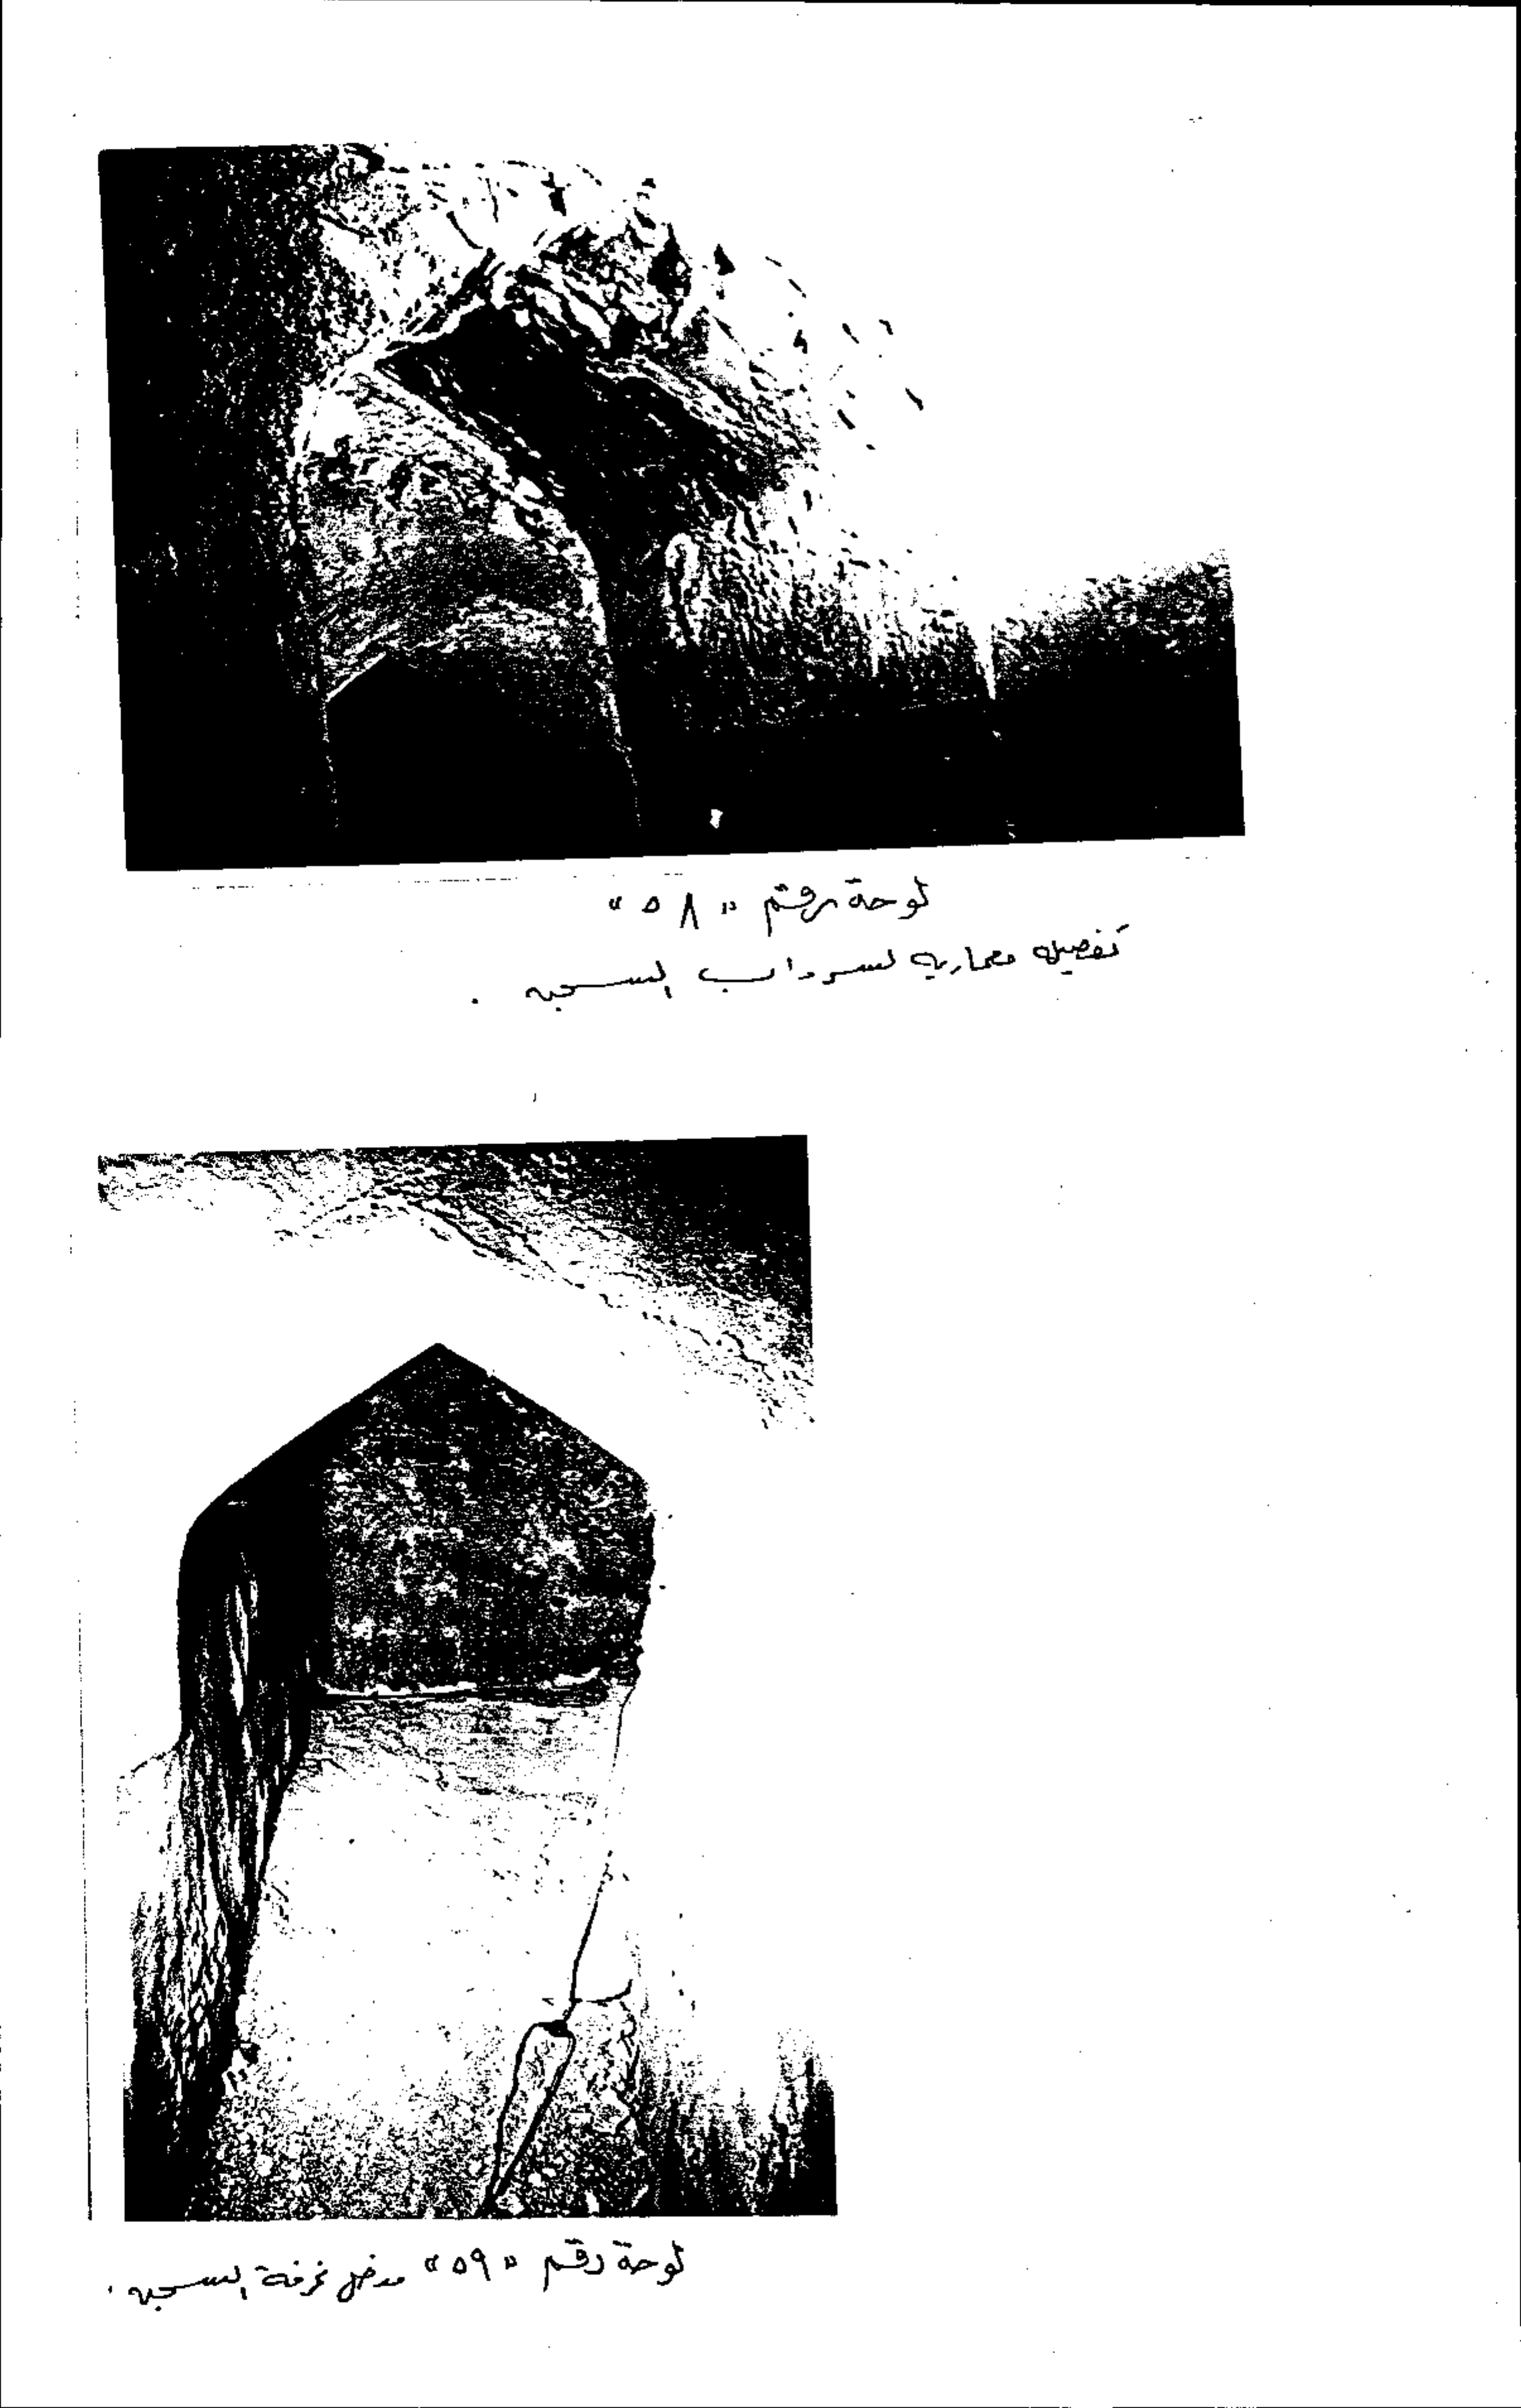 لوحة رقم « ٥٨ »
تفصيل معمارية لسرداب السجن .
لوحة رقم « ٥٩ » مدخل غرفة السجن .